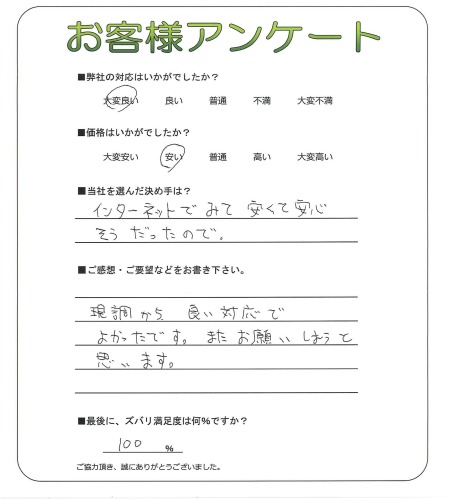 お客様アンケート
■弊社の対応はいかがでしたか？
大変良い 良い 普通 不満 大変不満
■価格はいかがでしたか？
大変安い 安い 普通 高い 大変高い
■当社を選んだ決め手は？
インターネットでみて 安くて安心
そうだったので。
■ご感想・ご要望などをお書き下さい。
現調から 良い対応で
よかったです。またお願いしようと
思います。
■最後に、ズバリ満足度は何％ですか？
100 ％
ご協力頂き、誠にありがとうございました。